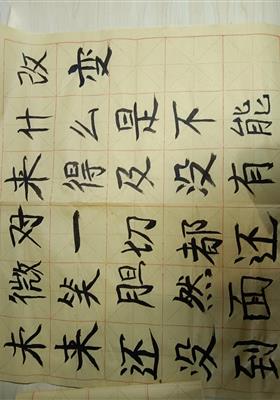 未来还没到
微笑胆然面
对一切都还
来得及没有
什么是不能
改变